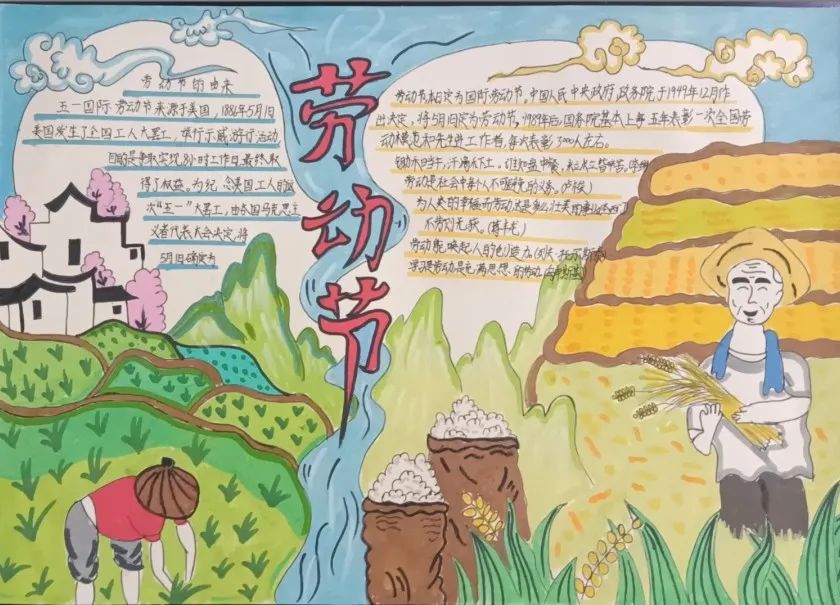 劳动节
劳动节的由来
五一国际劳动节来源于美国，1886年5月1日
美国发生了全国工人大罢工，举行示威游行活动
目的是争取实现8小时工作日，最终取
得了权益。为纪念美国工人的这
次“五一”大罢工，由各国马克思主
义者代表大会决定，将
5月1日确定为
劳动节本日定为国际劳动节。中国人民中央政府政务院于1949年12月作
出决定，将5月1日定为劳动节。1989年后，国务院基本上每五年表彰一次全国劳
动模范和先进工作者，每次表彰3000人左右。
锄禾日当午，汗滴禾下土。谁知盘中餐，粒粒皆辛苦。
劳动是社会中每个人不可避免的义务。(卢梭)
为人类的幸福而劳动，这是多么壮美的事业
不劳动无获。
劳动能唤起人的创造力。(列夫·托尔斯泰)
学习是劳动，是充满思想的劳动。